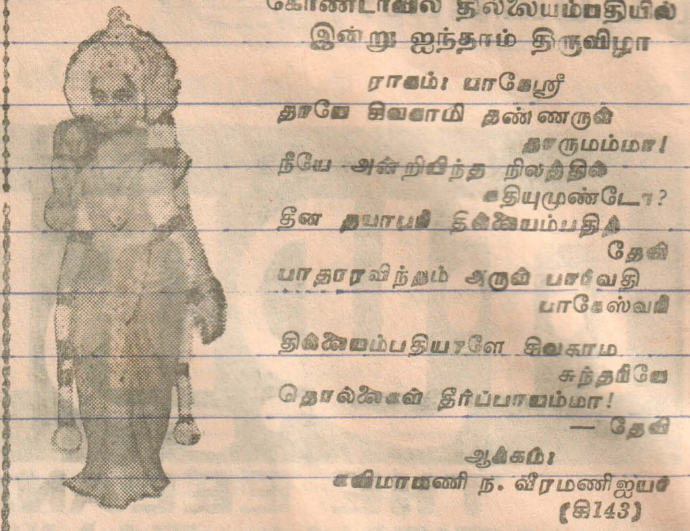 கோண்டாவில் தில்லையம்பதியில்
இன்று ஐந்தாம் திருவிழா
ராகம்: பாகேஸ்ரீ
தாயே சிவகாமி தண்ணருள்
தாருமம்மா!
நீயே அன்றியிந்த நிலத்தில்
கதியுமுண்டோ?
தீன தயாபரி தில்லையம்பதித்
தேவி
பாதாரவிந்தம் அருள் பார்வதி
பாகேஸ்வரி
தில்லையம்பதியாளே சிவகாம
சுந்தரியே
தொல்லைகள் தீர்ப்பாயம்மா!
— தேவி
ஆக்கம்:
கவிமாமணி ந. வீரமணி ஐயர்
(கி143)